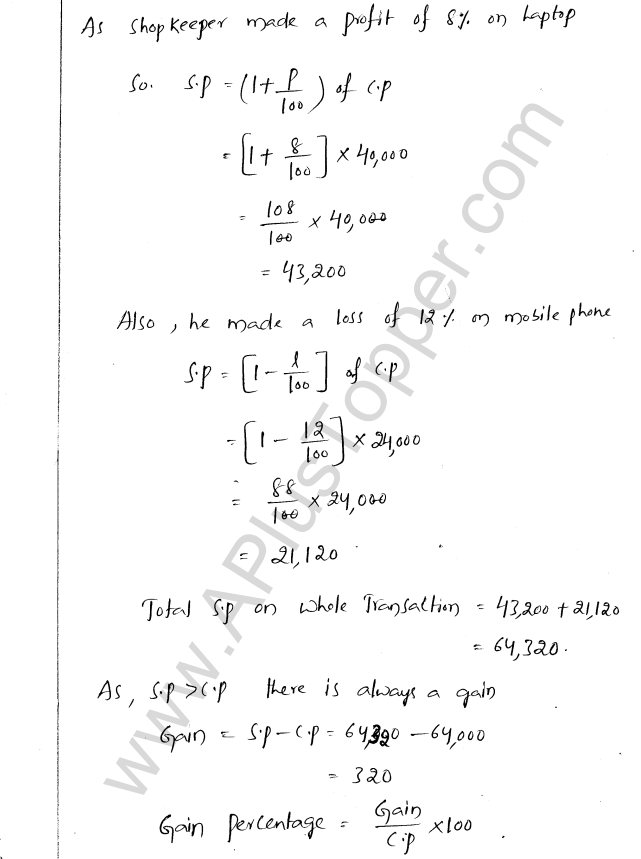 As shopkeeper made a profit of 8% on Laptop
So. S.p = (1 + P/100) of C.p
= [1 + 8/100] × 40,000
= 108/100 × 40,000
= 43,200
Also, he made a loss of 12% on mobile phone
S.p = [1 - l/100] of C.p
= [1 - 12/100] × 24,000
= 88/100 × 24,000
= 21,120
Total S.p on whole Transaltion = 43,200 + 21,120
= 64,320.
As, S.p > C.p there is always a gain
Gain = S.p - C.p = 64,320 - 64,000
= 320
Gain percentage = Gain/C.p × 100
www.APlusTopper.com